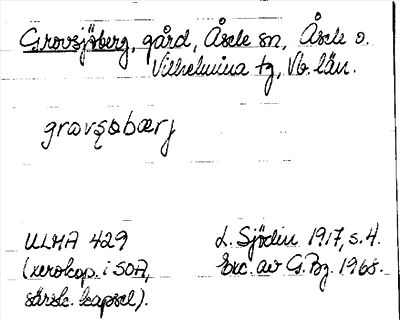 Grovsjöberg, gård, Åsele sn, Åsele o.
Vilhelmina tg, Vb. län.
gravşəbærj
ULMA 429
(xerokop. i SOA,
särsk. kapsel).
L. Sjödin 1917, s. 4.
Exc. av G. Bg. 1968.